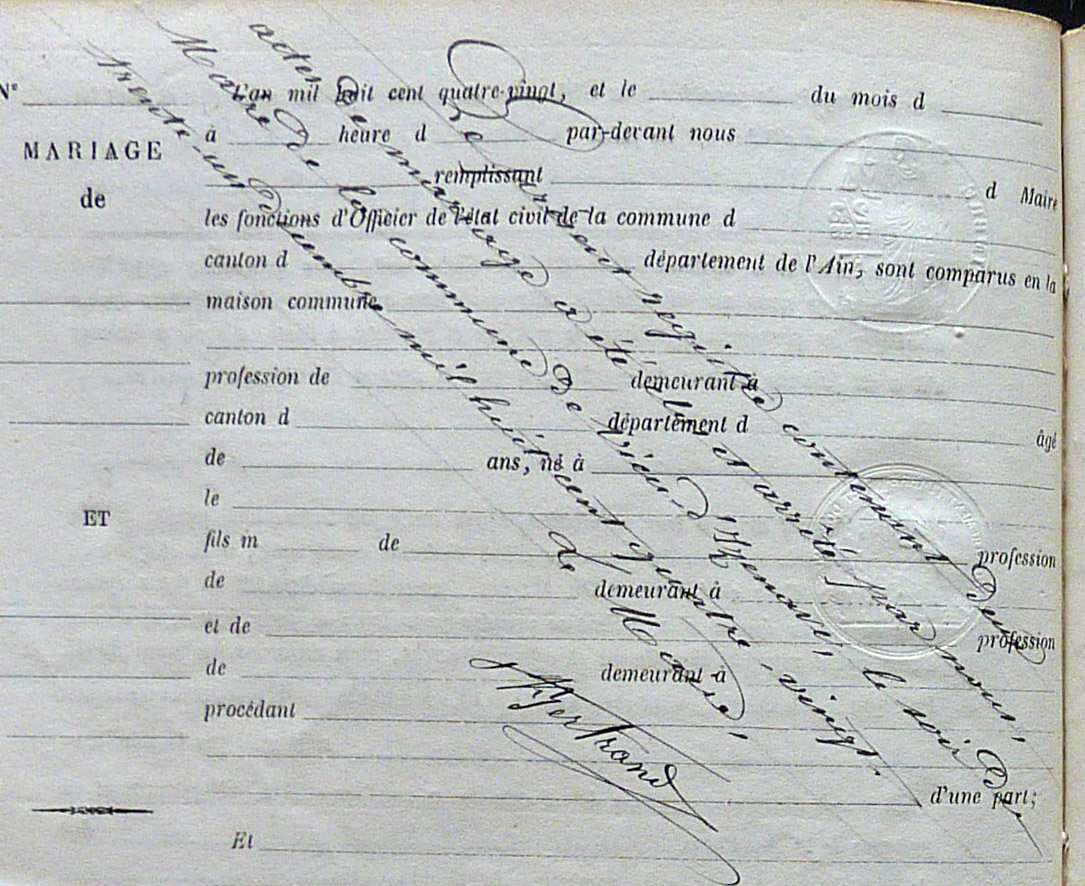 N°
L'an mil huit cent quatre-vingt, et le du mois d
à heure d par-devant nous
MARIAGE
remplissant d Maire
de
les fonctions d'Officier de l'état civil de la commune d
canton d département de l'Ain, sont comparus en la
maison commune
profession de demeurant à
canton d département d âgé
de ans, né à
le
ET
fils m de profession
de demeurant à
et de profession
de demeurant à
procédant
d'une part;
Et
Le présent registre contenant deux
actes de mariage a été clos et arrêté par nous,
Maire de la commune de Vieu d'Izenave, le soir du
trente-un Décembre mil huit cent quatre-vingt.
Le Maire,
Bertrand